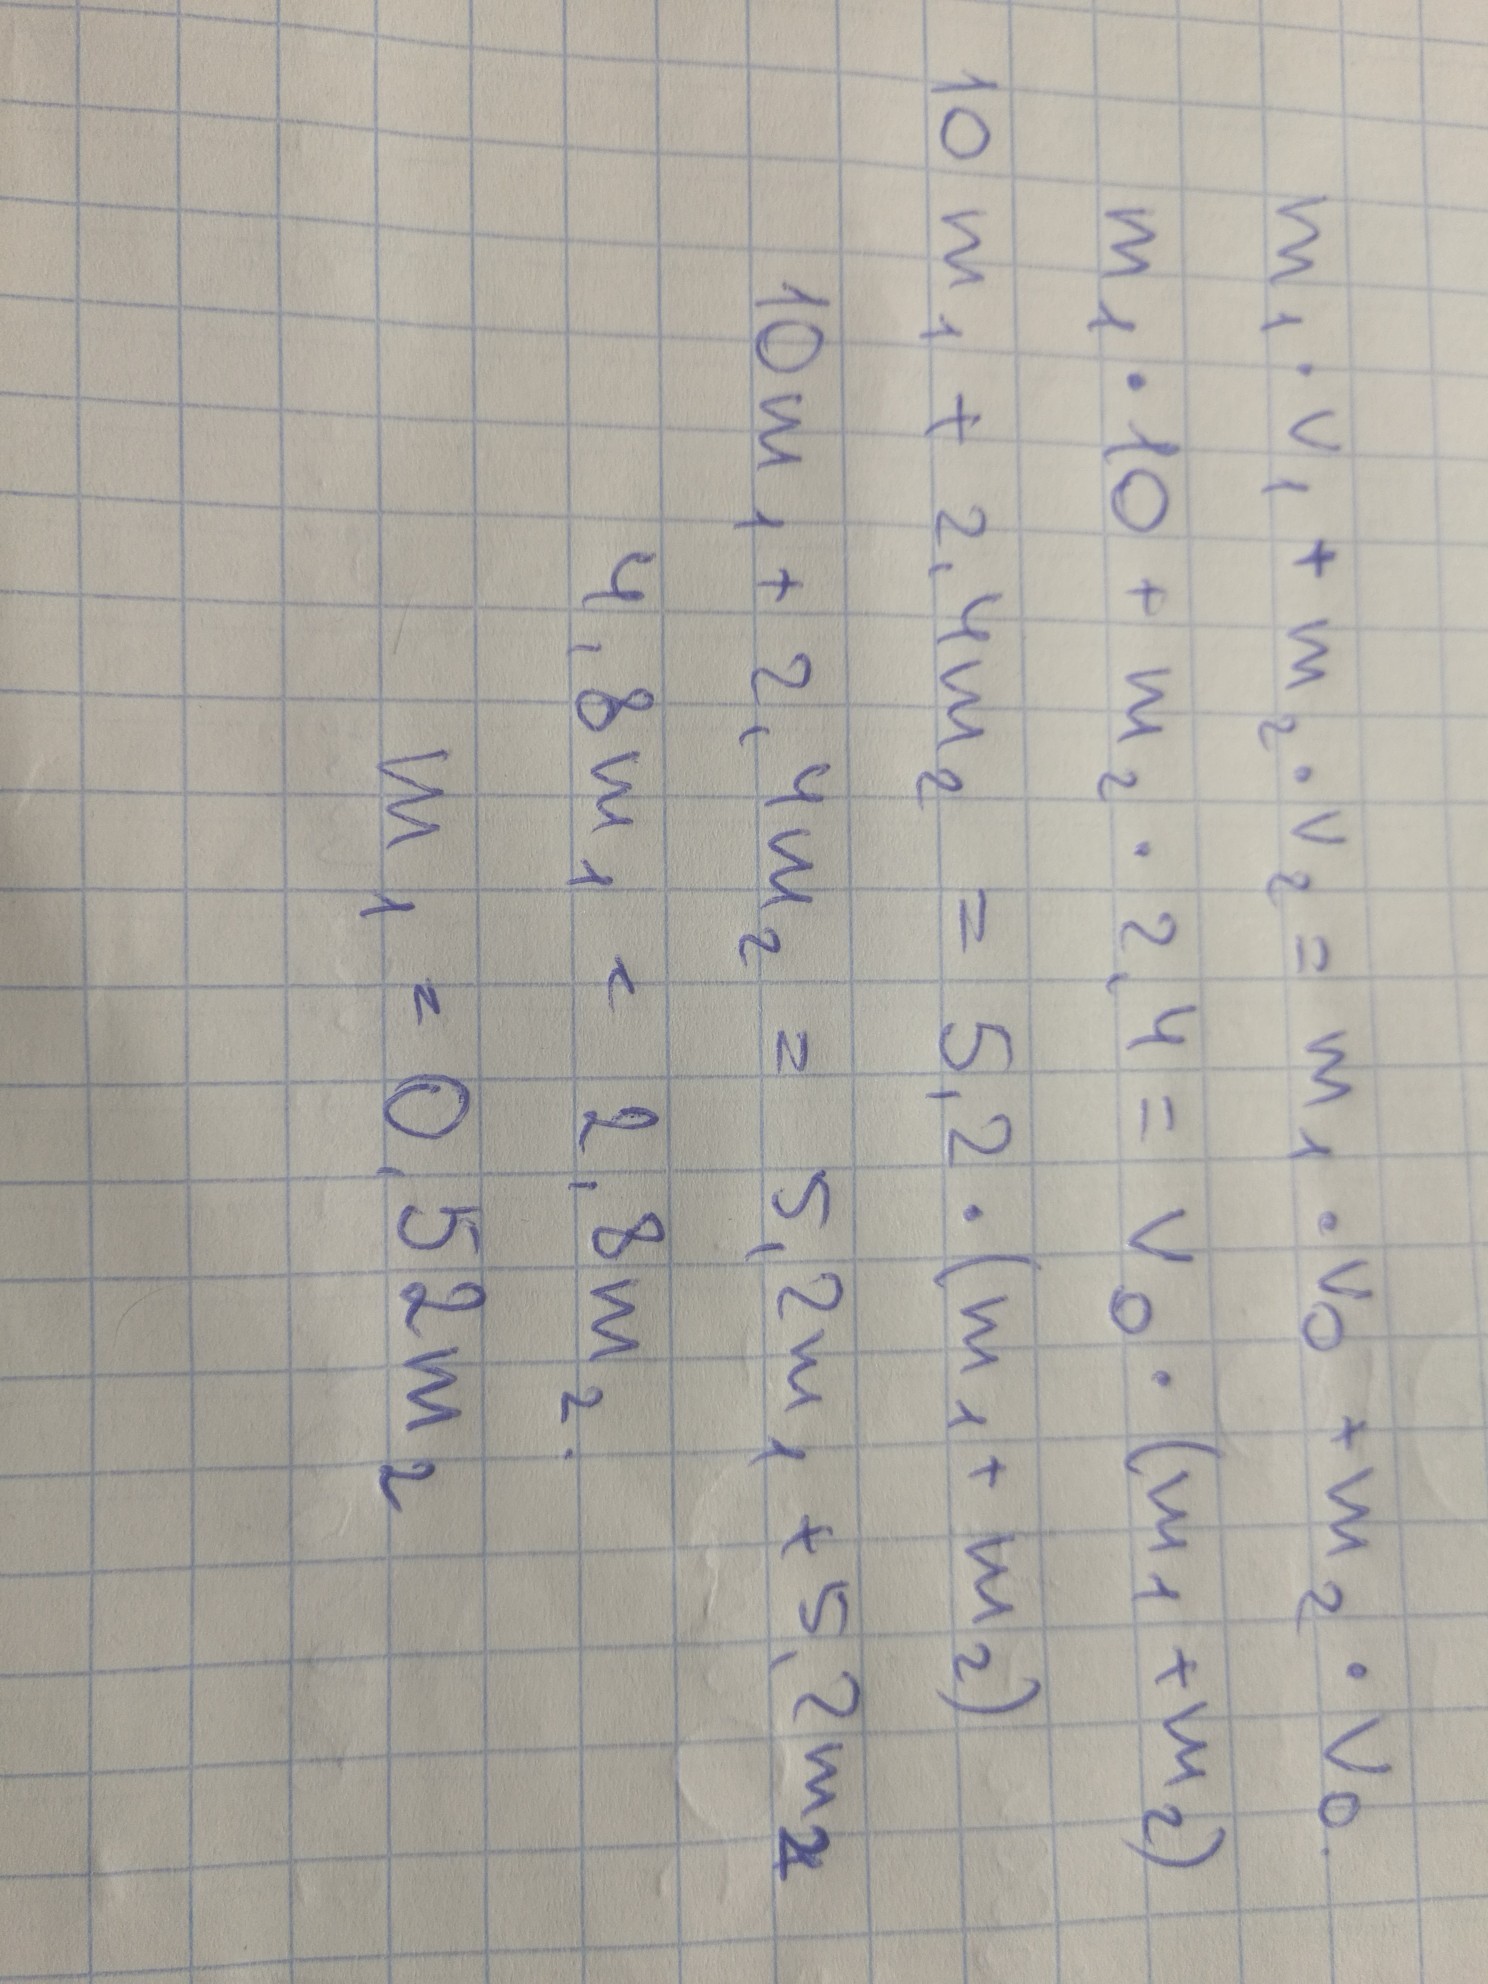 m₁·v₁ + m₂·v₂ = m₁·v₀ + m₂·v₀.
m₁·10 + m₂·2,4 = v₀·(m₁+m₂)
10m₁ + 2,4m₂ = 5,2·(m₁+m₂)
10m₁ + 2,4m₂ = 5,2m₁ + 5,2m₂
4,8m₁ = 2,8m₂.
m₁ = 0,52m₂